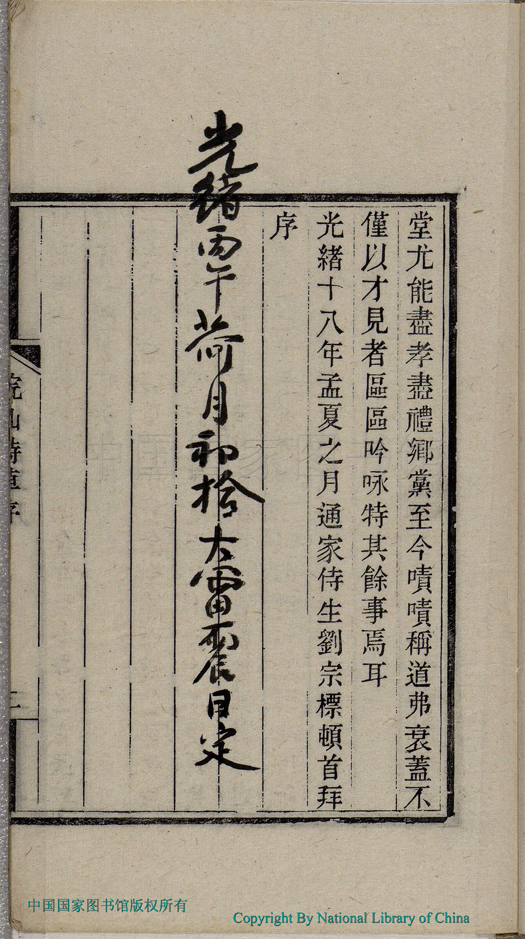 堂尤能盡孝盡禮鄉黨至今嘖嘖稱道弗衰蓋不
僅以才見者區區吟咏特其餘事焉耳
光緒十八年孟夏之月通家侍生劉宗標頓首拜
序
光緒丙午荷月初拾大雷震日定
山詩草序
二
中国国家图书馆版权所有
Copyright By National Library of China